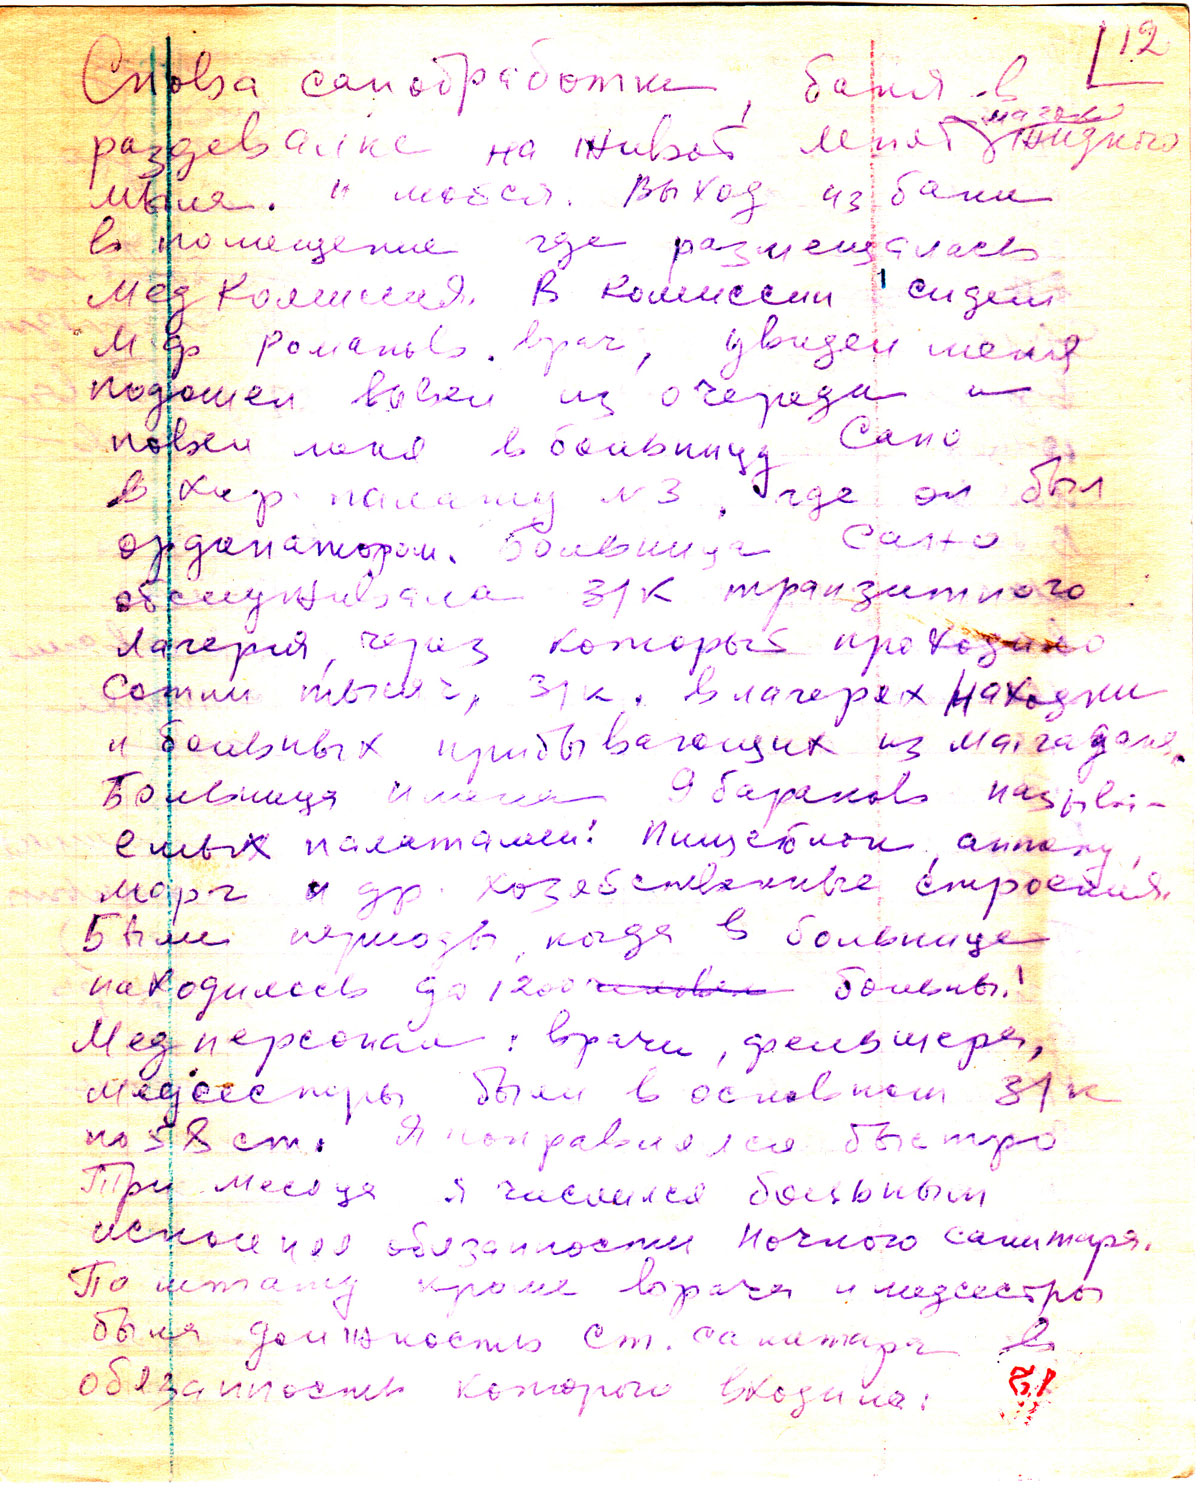 12
Снова санобработка, баня в
раздевалке на живот ляпят мазок жидкого
мыла. и мойся. Выход из бани
в помещение где размещалась
Мед комиссия. В комиссии сидел
М ф Романов. врач, увидел меня
подошел вывел из очереди и
повел меня в больницу Сано
в хир. палату N3, где он был
ординатором. Больница Сано
обслуживала З/К транзитного
лагеря, через который проходило
сотни тысяч, З/к. в лагерях Находки
и больных прибывающих из Магадана.
Больница имела 9 бараков назыв-
емых палатами! Пищеблок, аптеку,
морг и др. хозяйственные строения.
Были периоды, когда в больнице
находилось до 1200 человек больны!
Мед персонал: врачи, фельшера,
медсестры были в основном З/к
по 58 ст. Я поправлялся быстро
Три месяца я числился больным
исполняя обязанности ночного санитара.
По штату кроме врача и медсестры
была должность Ст. санитара в
обязанность которого входила: